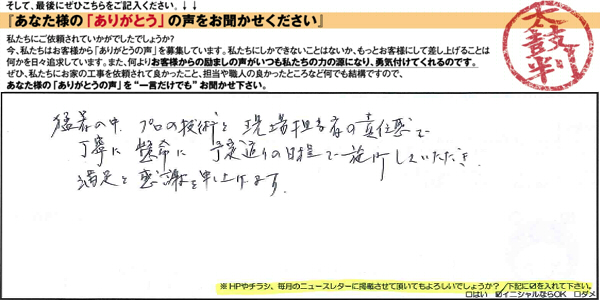 そして、最後にぜひこちらをご記入ください。↓↓
『あなた様の「ありがとう」の声をお聞かせください』
私たちにご依頼されていかがでしたでしょうか?
今、私たちはお客様から「ありがとうの声」を募集しています。私たちにしかできないことはないか、もっとお客様にして差し上げることは
何かを日々追求しています。また、何よりお客様からの励ましの声がいつも私たちの力の源になり、勇気付けてくれるのです。
ぜひ、私たちにお家の工事を依頼されて良かったこと、担当や職人の良かったところなど何でも結構ですので、
あなた様の「ありがとうの声」を"一言だけでも"お聞かせ下さい。
太鼓判
猛暑の中 プロの技術と現場担当者の責任感で
丁寧に懸命に予定通りの日程で施行していただき
満足と感謝を申し上げます。
※HPやチラシ、毎月のニュースレターに掲載させて頂いてもよろしいでしょうか?/下記に☑を入れて下さい。
□はい ☑イニシャルならOK □ダメ